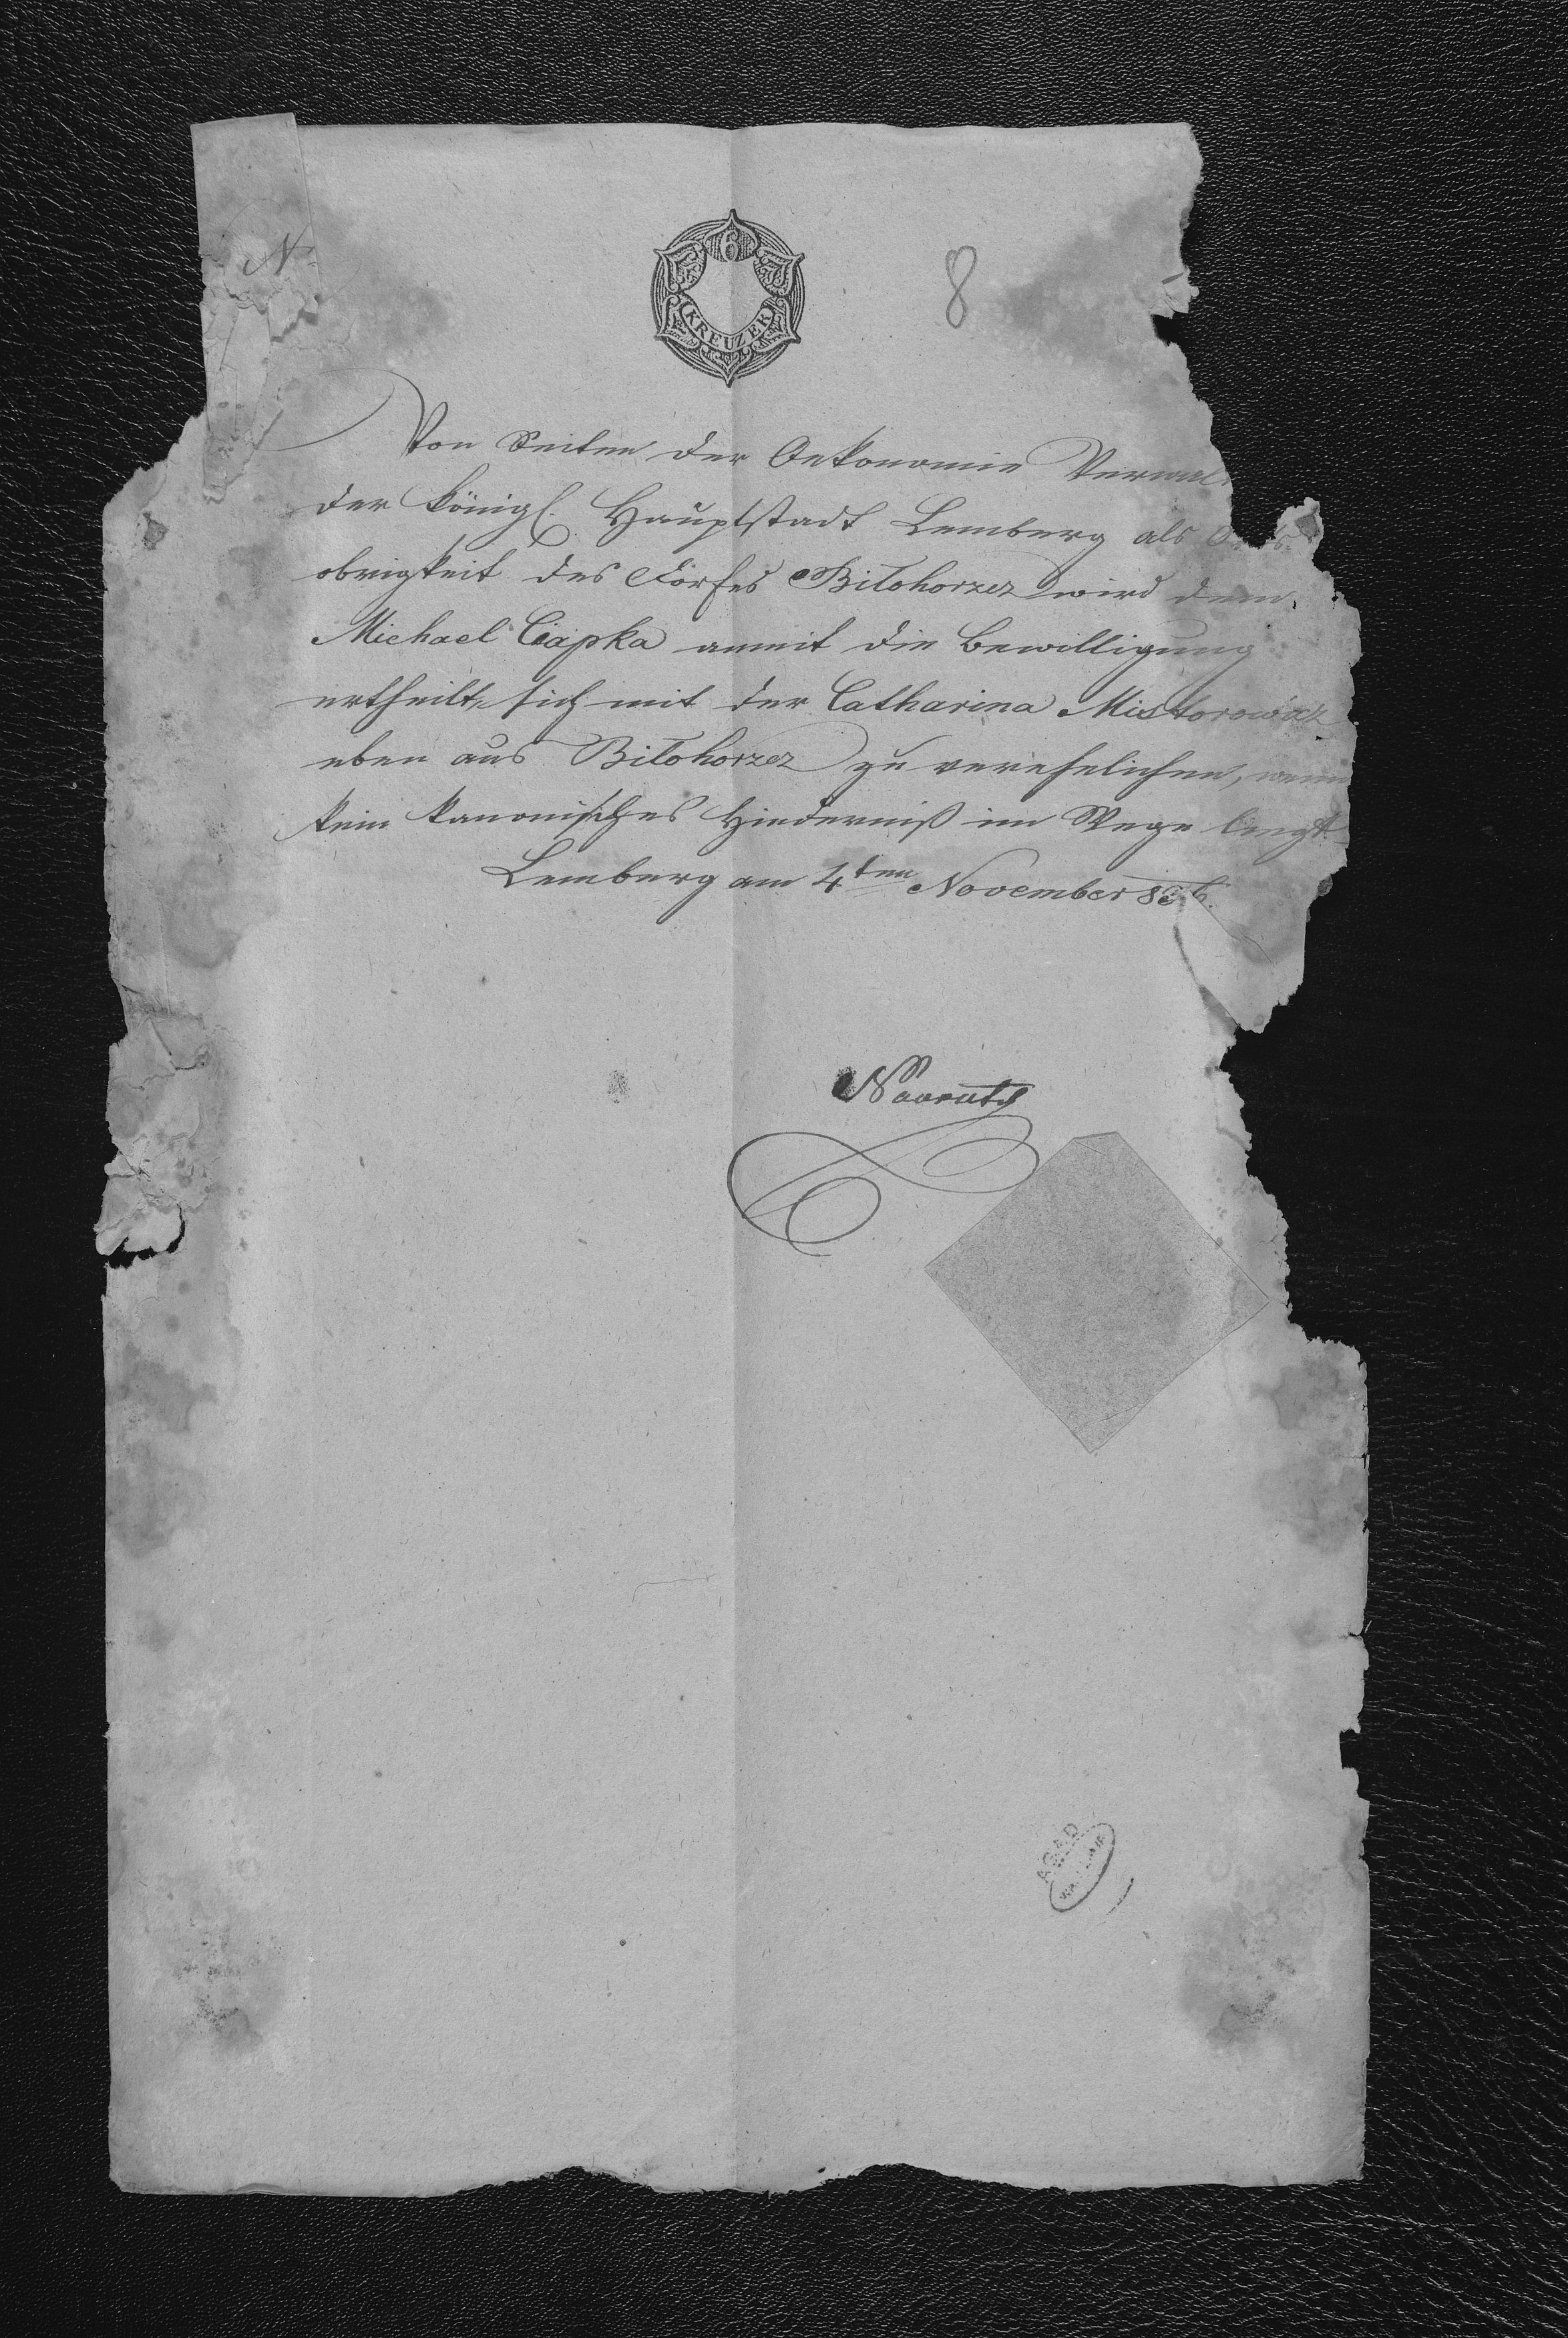 N.
6
KREUZER
8
Von Seiten der Oekonomie Verwal
der königl. Hauptstadt Lemberg als
obrigkeit des Dorfes Biłohorzcz wird dem
Michael Ciapka anmit die Bewilligung
ertheilt, sich mit der Catharina
eben aus Biłohorzcz zu verehelichen, wenn
kein kanonisches Hinderniß im Wege liegt.
Lemberg am 4ten November
AGAD